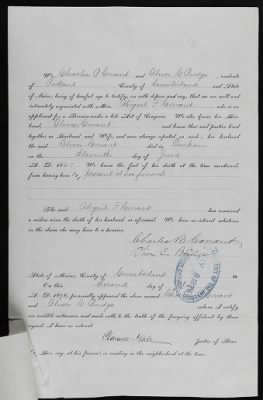 We, Charles B Conant and Oliver C Dodge, residents
of Portland County of Cumberland and State
of Maine, being of lawful age to testify, on oath depose and say, that we are well and
intimately acquainted with Mrs. Abigail F Conant who is an
applicant for a Pension under a late Act of Congress. We also knew her hus-
band, Oliver Conant and know that said parties lived
together as Husband and Wife, and were always reputed as such; her husband
the said Oliver Conant died in Durham
on the Eleventh day of June
A. D. We know the fact of his death at the time mentioned,
from having been present at his funeral
The said Abigail F Conant has remained
a widow since the death of her husband as aforesaid. We have no interest whatever
in the claim she may have to a bounty.
Charles B Conant
State of Maine, County of Cumberland ss
On this Second day of
A. D. 1878, personally appeared the above named Conant
and Oliver C Dodge whom I certify
are credible witnesses, and made oath to the truth of the foregoing affidavit by them
signed, I have no interest.
Clarence Hale Justice of Peace
say, at his funeral or residing in the neighborhood at the time.